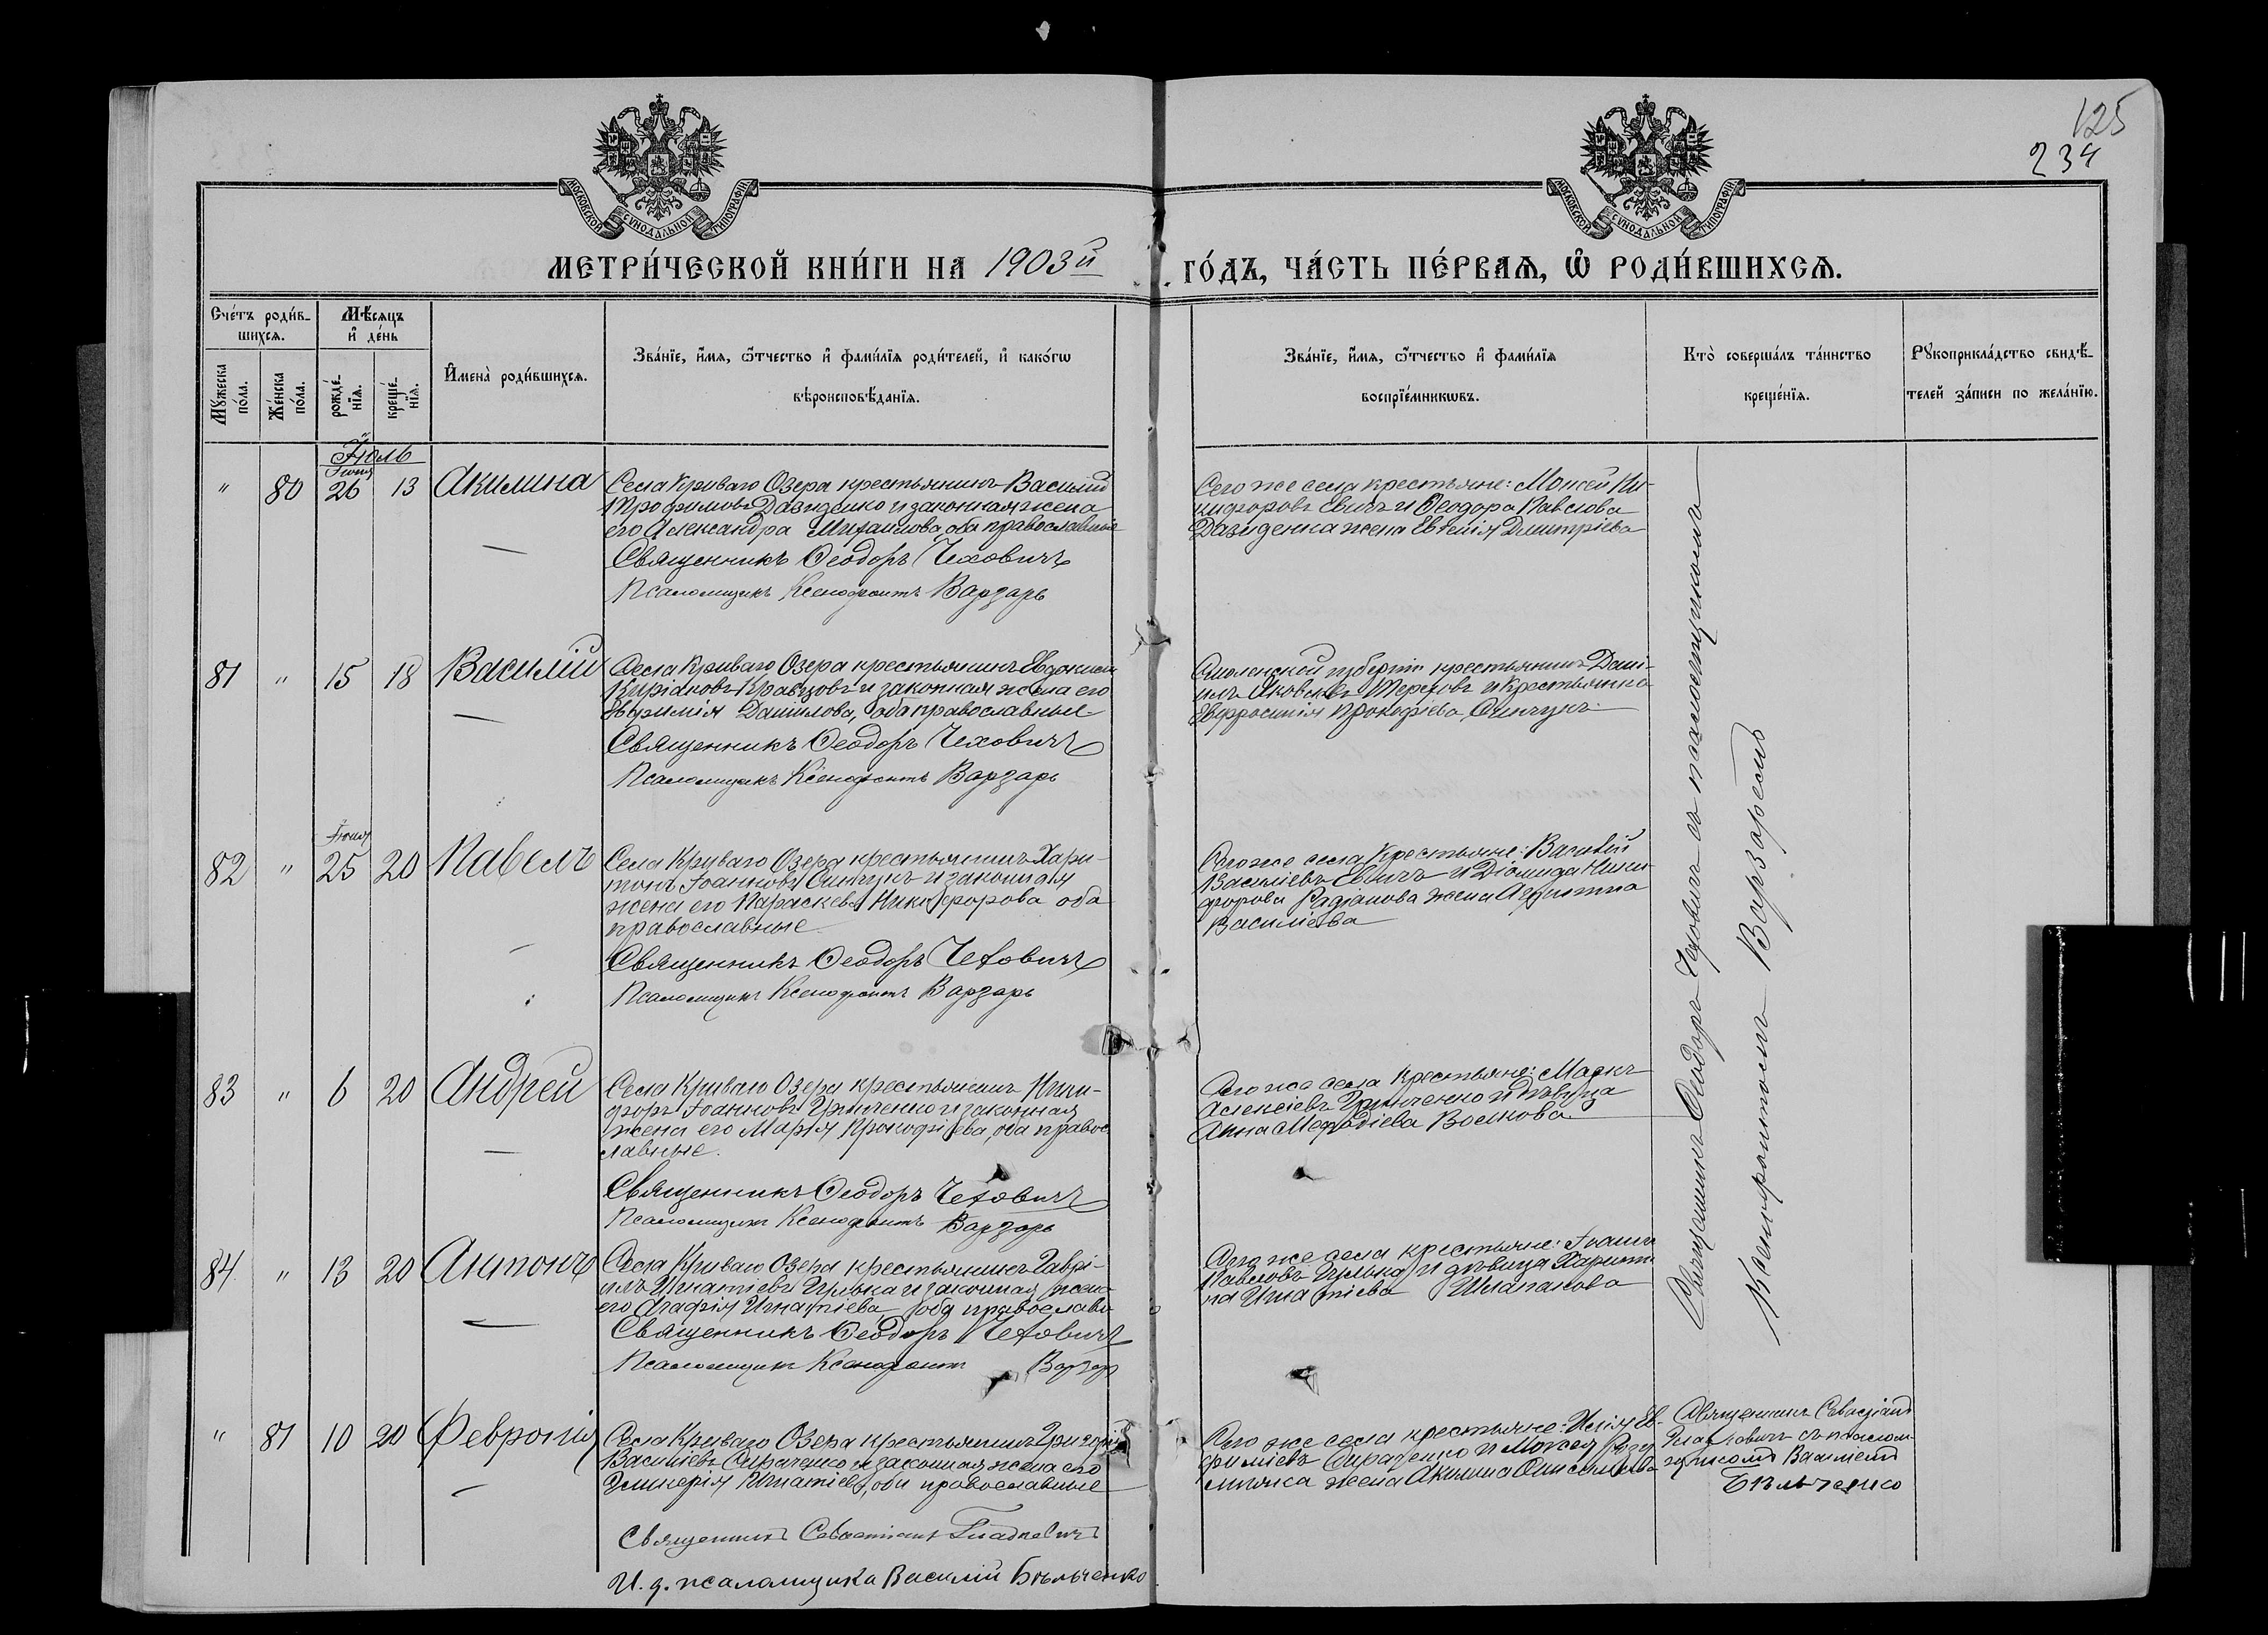 125
234
МОСКОВСКОЙ СѴНОДАЛЬНОЙ ТИПОГРАФІИ
МОСКОВСКОЙ СѴНОДАЛЬНОЙ ТИПОГРАФІИ
МЕТРИ́ЧЕСКОЙ КНИ́ГИ НА 1903й ГО́ДЪ, ЧА́СТЬ ПЕ́РВАѦ, Ѽ РОДИ́ВШИХСѦ.
Счє́тъ роди́в-
шихсѧ.
Мꙋ́жеска по́ла.
Же́нска по́ла.
Мѣ́сѧцъ
и҆ де́нь
рожде́-
нїѧ.
креще́-
нїѧ.
И҆мена̀ роди́вшихсѧ.
Зва́нїе, и҆́мѧ, ѻ҆́тчество и҆ фами́лїѧ роди́телей, и҆ како́гѡ
вѣроисповѣ́данїѧ.
Зва́нїе, и҆́мѧ, ѻ҆́тчество и҆ фами́лїѧ
воспрїе́мникѡвъ.
Кто̀ соверша́лъ та́инство
креще́нїѧ.
Рꙋкоприкла́дство свидѣ́-
телей за́писи по жела́нїю.
Іюль
" 80 Іюня 26 13 Акилина
Села Криваго Озера крестьянинъ Василій
Трофимовъ Давиденко и законная жена
его Александра Михаилова, оба православные
Священникъ Ѳеодоръ Чеховичъ
Псаломщикъ Ксенофонтъ Варзарь
Сего же села крестьяне: Моисей Ни-
кифоровъ Евичъ и Ѳеодора Павлова
Давиденка жена Евѳимія Димитріева
81 " 15 18 Василій
Села Криваго Озера крестьянинъ Евдокимъ
Киріаковъ Кравцовъ и законная жена его
Евфимія Даніилова, оба православные
Священникъ Ѳеодоръ Чеховичъ
Псаломщикъ Ксенофонтъ Варзарь
Смоленской губерніи крестьянинъ Дані-
илъ Яковлевъ Тереховъ и крестьянка
Евфросинія Прокофіева
82 " Іюня 25 20 Павелъ
Села Криваго Озера крестьянинъ Хари-
тонъ Іоанновъ и законная
жена его Параскева Никифорова оба
православные
Священникъ Ѳеодоръ Чеховичъ
Псаломщикъ Ксенофонтъ Варзарь
Сего же села крестьяне: Василій
Василіевъ Евичъ и Діомида Ники-
форова Радіонова жена
Василіева
83 " 6 20 Андрей
Села Криваго Озера крестьянинъ Ники-
форъ Іоанновъ Гринченко и законная
жена его Марія Прокофіева, оба правос-
лавные.
Священникъ Ѳеодоръ Чеховичъ
Псаломщикъ Ксенофонтъ Варзарь
Сего же села крестьяне: Маркъ
Алексіевъ Гринченко и дѣвица
Анна Меѳодіева Волкова
84 " 13 20 Антонъ
Села Криваго Озера крестьянинъ Гаврі-
илъ Игнатіевъ Гулька и законная жена
его Агафія Игнатіева, оба православ.
Священникъ Ѳеодоръ Чеховичъ
Псаломщикъ Ксенофонтъ Варзарь
Сего же села крестьяне: Іоаннъ
Павловъ Гулька и дѣвица Харити-
на Игнатіева Шпапакова
Священникъ Ѳеодоръ Чеховичъ съ псаломщикомъ
Ксенофонтомъ Варзаремъ
" 81 10 20 Февронія
Села Криваго Озера крестьянинъ Григорій
Василіевъ Сираченко и законная жена его
Гликерія Игнатіева, оба православные
Священникъ Севастіанъ Гладкевичъ
И. д. псаломщика Василій Бѣльченко
Сего же села крестьяне: Илія Ев-
фиміевъ Сираченко и Мокея
жена Акилина
Священникъ Севастіанъ
Гладкевичъ съ псалом-
щикомъ Василіемъ
Бѣльченко